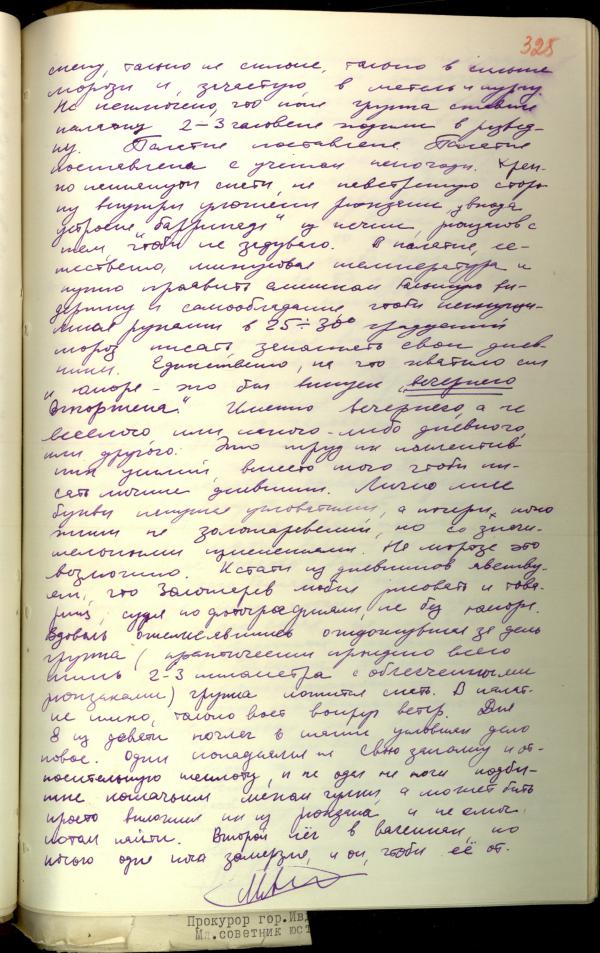 325
смену, только не сильные, только в сильные
морозы и, зачастую, в метель и пургу.
Не исключено, что пока группа ставила
палатку 2-3 человека ходили в развед-
ку. Палатка поставлена
поставлена с учётом непогоды. Креп-
ко натянуты скаты, на наветренную сторо-
ну внутри уложены рюкзаки, у входа
устроена "баррикада" из печки, рюкзаков с
тем, чтобы не задувало. В палатке, ес-
тественно, минусовая температура и
нужно проявить слишком большую вы-
держку и самообладание чтобы
руками в 25÷30° градусный
мороз писать, заполнять свои днев-
ники. Единственно, на что хватило сил
и юмора - это был выпуск "вечернего
Отортена". Именно вечернего, а не
веселого или какого-либо дневного,
или другого. Это труд коллектив-
ных усилий, вместо того чтобы пи-
сать личные дневники. Лично мне
буквы
не золотаревский, но со значи-
тельными изменениями. На морозе это
возможно. Кстати из дневников явству-
ет, что Золотарев любил рисовать и
судя по фотографиям, не без юмора.
Вдоволь отдохнувшая за день
группа (практически пройдено всего
лишь 2-3 километра с облегченными
рюкзаками) группа ложится спать. В палат-
ке тихо, только воет вокруг ветер. Для
8 из девяти ночлег в таких условиях дело
новое. Одни понадеялся на свою закалку и от-
носительную теплоту, и не одел на ноги
просто выложил их из рюкзака и не смог
потом найти. Второй лёг в валенках, но
ночью одна нога замерзла, и он, чтобы её от-
Прокурор гор.Ивд
Мл.советник юст